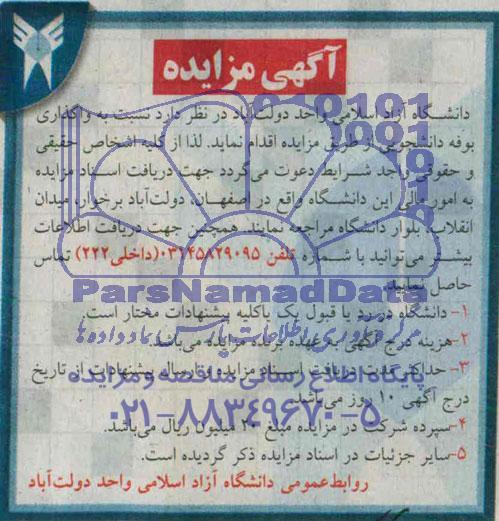 آگهی مزایده
دانشگاه آزاد اسلامی واحد دولت‌آباد در نظر دارد نسبت به واگذاری
بوفه دانشجویی از طریق مزایده اقدام نماید. لذا از کلیه اشخاص حقیقی
و حقوقی واجد شرایط دعوت می‌گردد جهت دریافت اسناد مزایده
به امور مالی این دانشگاه واقع در اصفهان، دولت‌آباد برخوار، میدان
انقلاب، بلوار دانشگاه مراجعه نمایند. همچنین جهت دریافت اطلاعات
بیشتر می‌توانید با شماره تلفن ۰۳۱۴۵۸۲۹۰۹۵ (داخلی ۲۲۲) تماس
حاصل نمایید.
ParsNamadData
۱- دانشگاه در رد یا قبول یک یا کلیه پیشنهادات مختار است.
مرکز فرآوری اطلاعات پارس نماد داده ها
۲- هزینه درج آگهی به عهده برنده مزایده می‌باشد.
۳- حداکثر مدت دریافت اسناد مزایده و ارسال پیشنهادات از تاریخ
پایگاه اطلاع رسانی مناقصه و مزایده
درج آگهی ۱۰ روز می‌باشد.
۰۲۱-۸۸۳۴۹۶۷۰-۵
۴- سپرده شرکت در مزایده مبلغ ۲۰ میلیون ریال می‌باشد.
۵- سایر جزئیات در اسناد مزایده ذکر گردیده است.
روابط عمومی دانشگاه آزاد اسلامی واحد دولت‌آباد